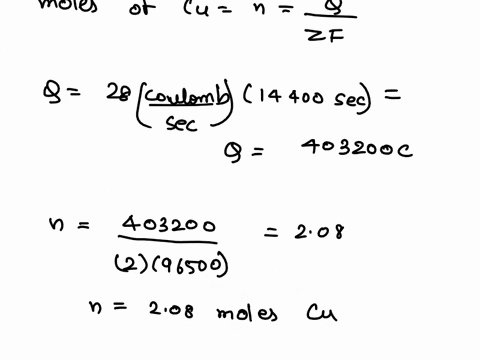 moles of Cu = n = Q / ZF
Q = 28 (coulomb / sec) (14400 sec) =
Q = 403200C
n = 403200 / (2)(96500) = 2.08
n = 2.08 moles Cu